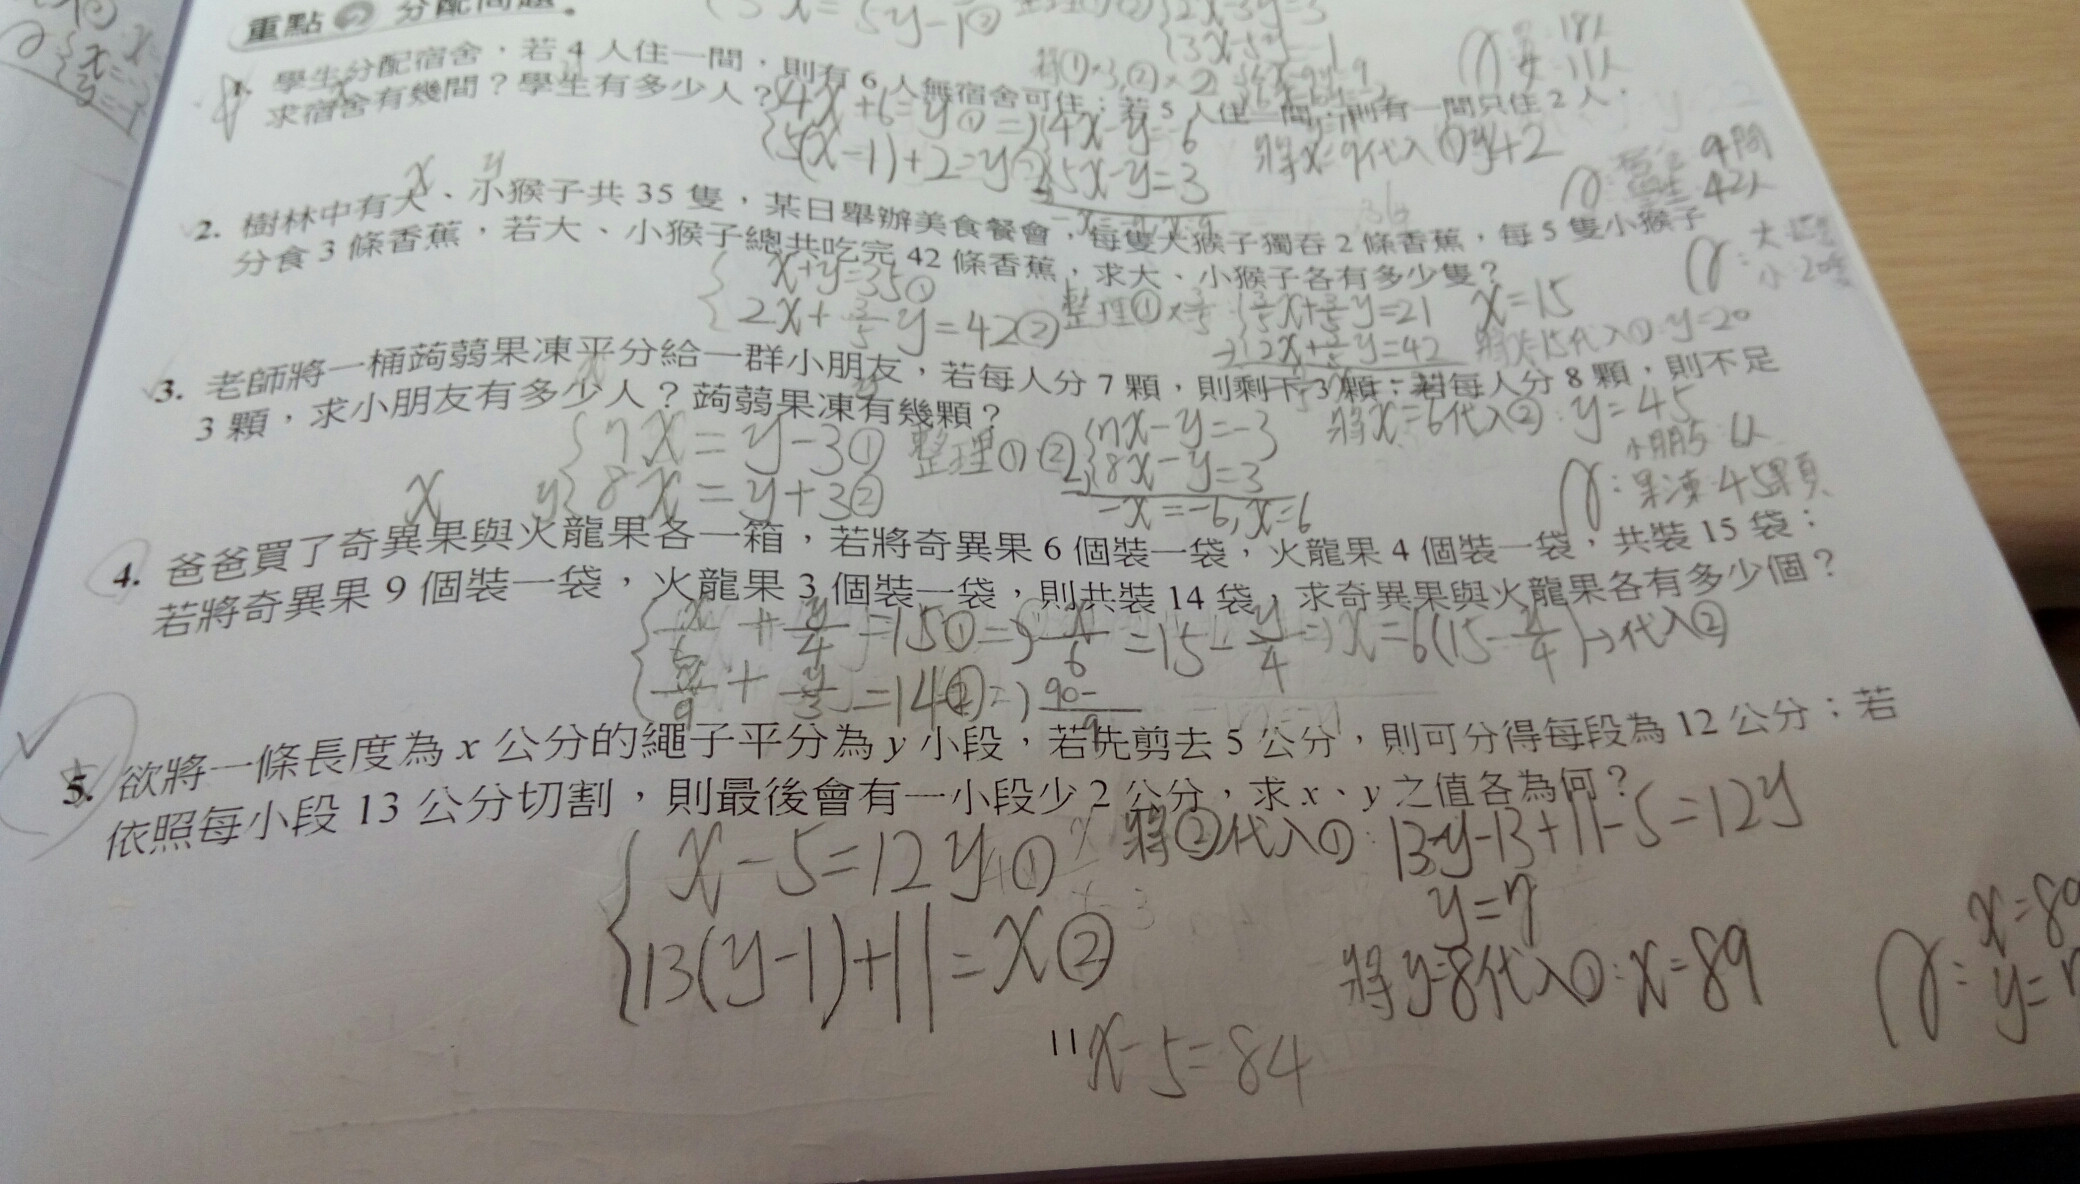 重點 分配問題。
5y-10
2x-3y=3
3x-5y=-1
1. 學生分配宿舍，若 4 人住一間，則有 6 人無宿舍可住；若 5 人住一間，則有一間只住 2 人，
求宿舍有幾間？學生有多少人？
4x+6=y① => 4x-y=-6
5(x-1)+2=y② 5x-y=3
將x=9代入① y=42
9間
學生 42人
x y
2. 樹林中有大、小猴子共 35 隻，某日舉辦美食餐會，每隻大猴子獨吞 2 條香蕉，每 5 隻小猴子
分食 3 條香蕉，若大、小猴子總共吃完 42 條香蕉，求大、小猴子各有多少隻？
x+y=35①
2x+3/5y=42②
整理①×3/5
3/5x+3/5y=21
2x+3/5y=42
x=15
將x=15代入① y=20
3. 老師將一桶蒟蒻果凍平分給一群小朋友，若每人分 7 顆，則剩下 3 顆；若每人分 8 顆，則不足
3 顆，求小朋友有多少人？蒟蒻果凍有幾顆？
7x=y-3①
8x=y+3②
整理①②
7x-y=-3
8x-y=3
-x=-6, x=6
將x=6代入②: y=45
小朋友 6人
果凍 45顆
x y
4. 爸爸買了奇異果與火龍果各一箱，若將奇異果 6 個裝一袋，火龍果 4 個裝一袋，共裝 15 袋；
若將奇異果 9 個裝一袋，火龍果 3 個裝一袋，則共裝 14 袋，求奇異果與火龍果各有多少個？
x/6+y/4=15① => x/6=15-y/4 => x=6(15-y/4)→代入②
x/9+y/3=14② => 90-/9
5. 欲將一條長度為 x 公分的繩子平分為 y 小段，若先剪去 5 公分，則可分得每段為 12 公分；若
依照每小段 13 公分切割，則最後會有一小段少 2 公分，求 x、y 之值各為何？
x-5=12y①
13(y-1)+11=x②
將②代入①: 13y-13+11-5=12y
y=7
將y=8代入①: x=89
x=89
y=7
11
x-5=84